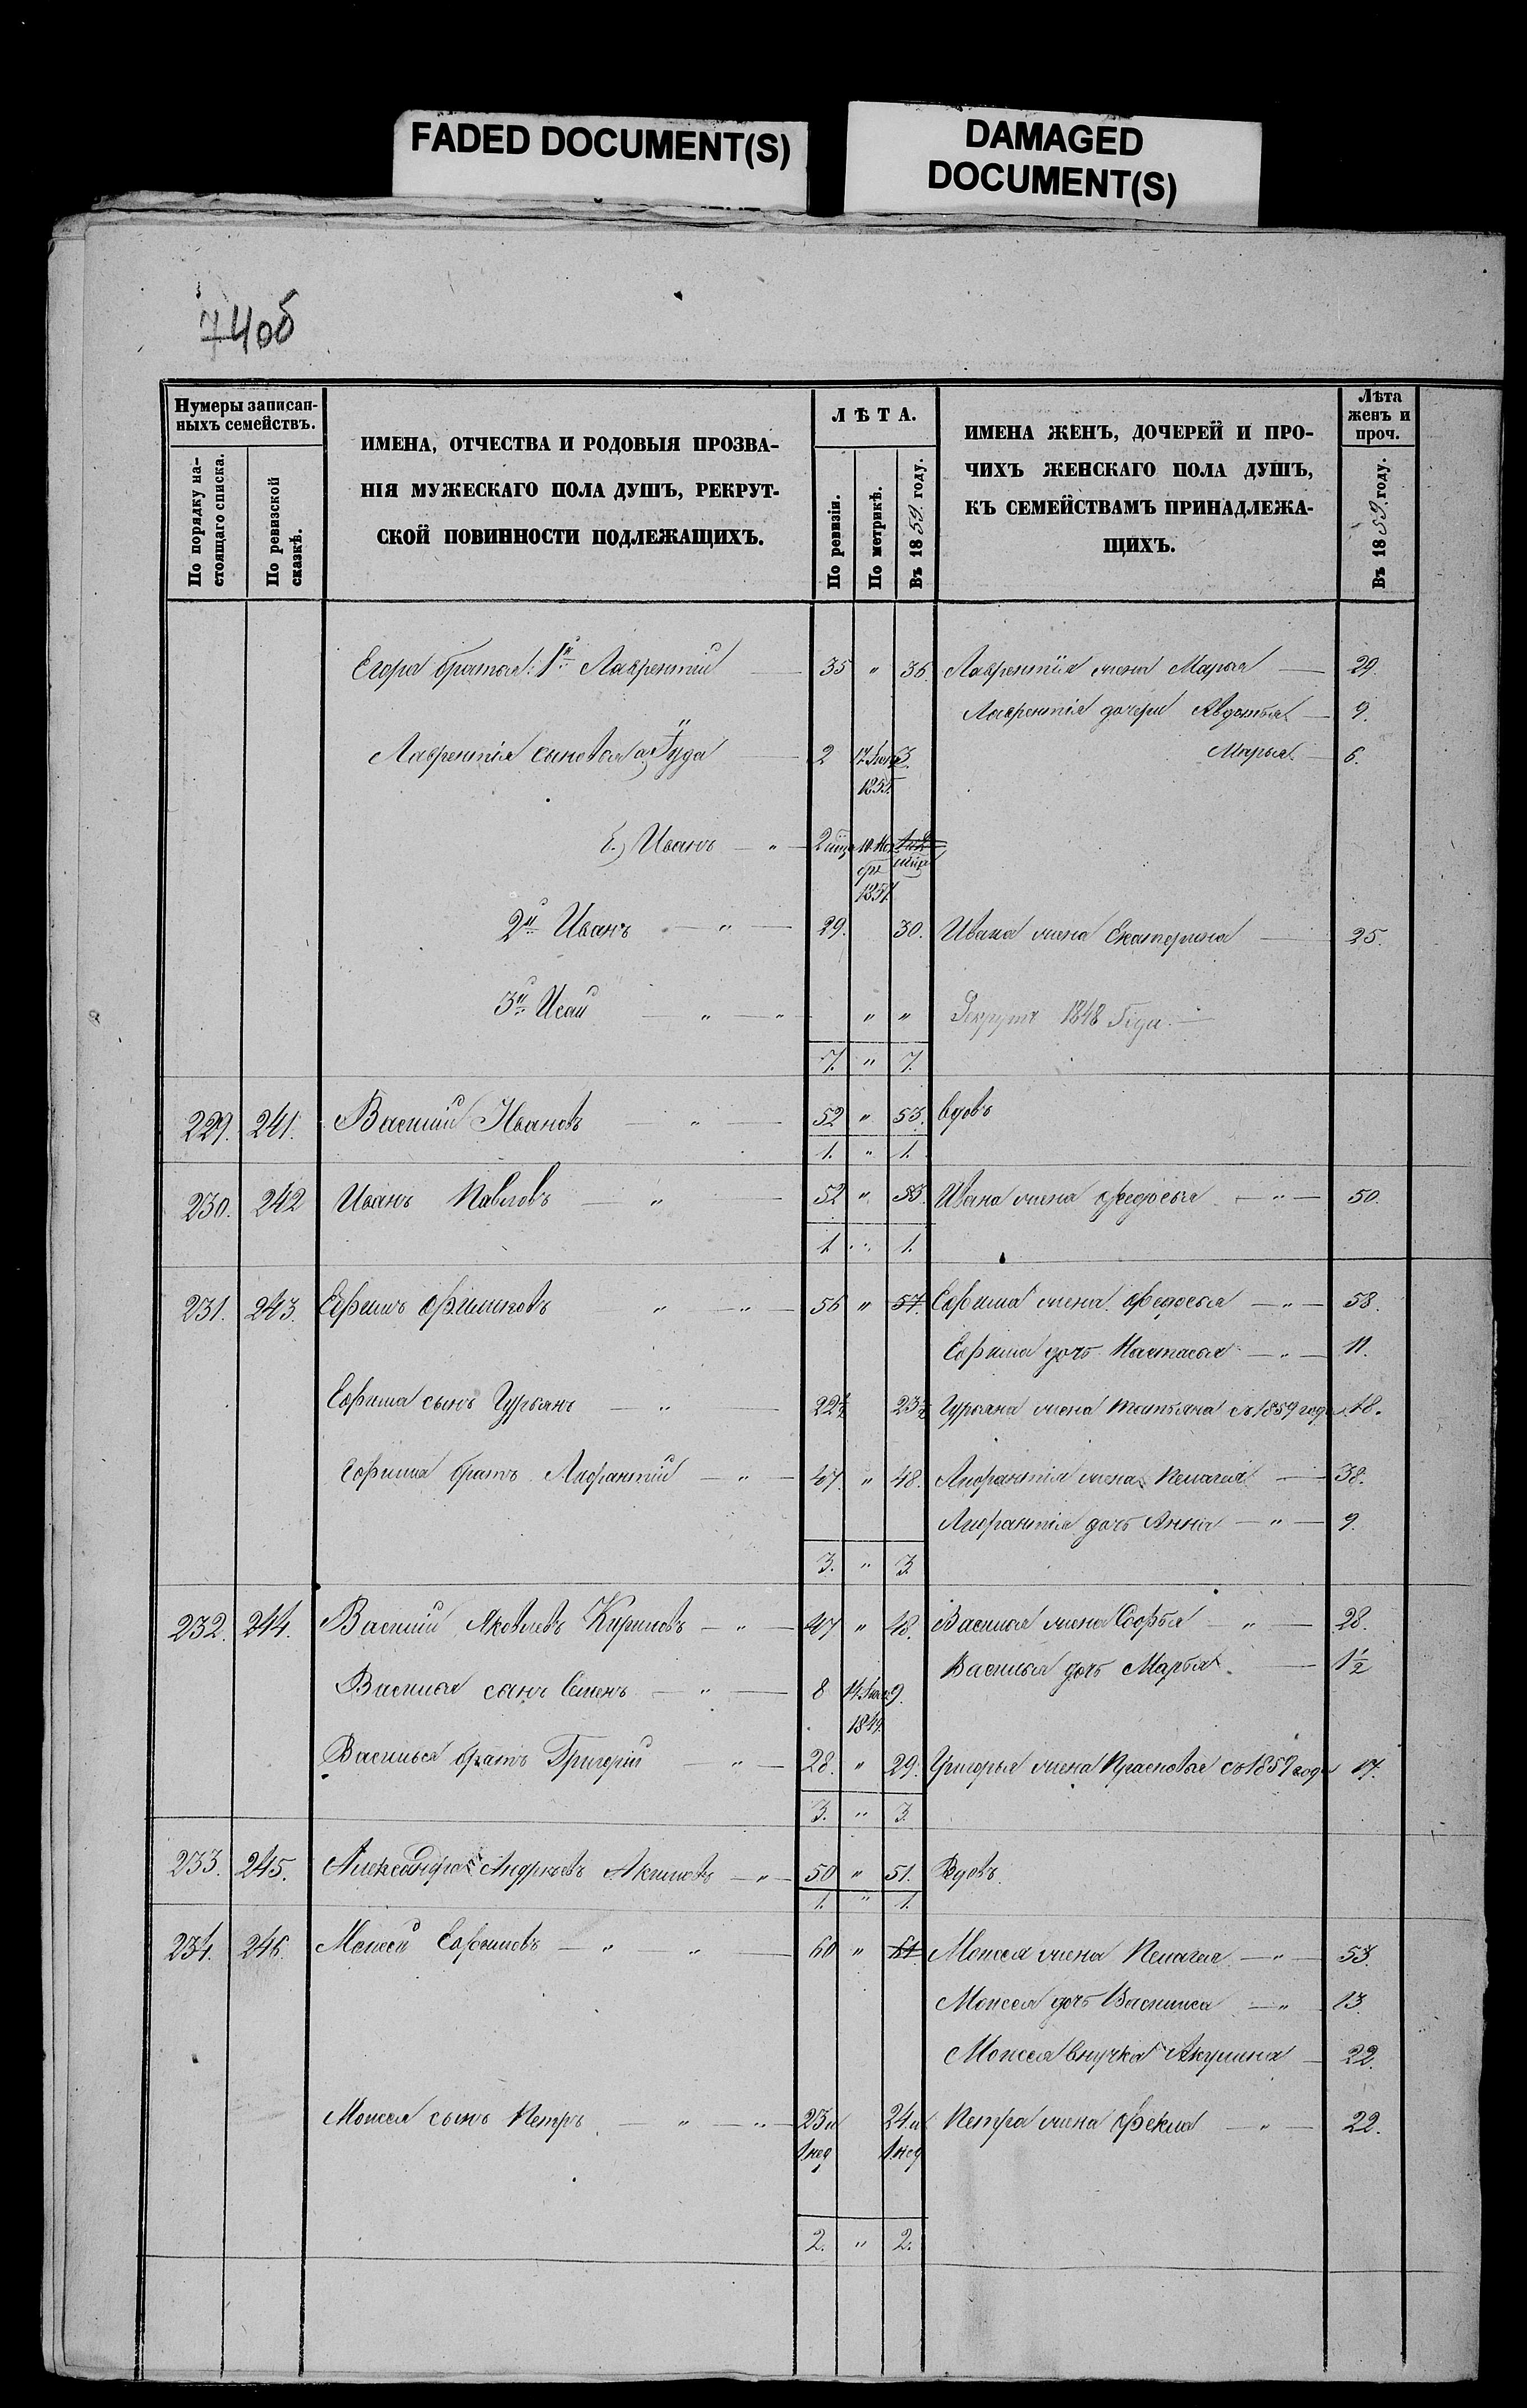 FADED DOCUMENT(S)
DAMAGED
DOCUMENT(S)
740б
Нумеры записан-
ныхъ семействъ.
По порядку на-
стоящаго списка.
По ревизской
сказкѣ.
ИМЕНА, ОТЧЕСТВА И РОДОВЫЯ ПРОЗВА-
НІЯ МУЖЕСКАГО ПОЛА ДУШЪ, РЕКРУТ-
СКОЙ ПОВИННОСТИ ПОДЛЕЖАЩИХЪ.
ЛѢТА.
По ревизіи.
По метрикѣ.
Въ 1859. году.
ИМЕНА ЖЕНЪ, ДОЧЕРЕЙ И ПРО-
ЧИХЪ ЖЕНСКАГО ПОЛА ДУШЪ,
КЪ СЕМЕЙСТВАМЪ ПРИНАДЛЕЖА-
ЩИХЪ.
Лѣта
женъ и
проч.
Въ 1859. году.
Егора братья: 1й Лаврентій 35 " 36. Лаврентія жена Марья 29.
Лаврентія дочери Авдотья 9.
Лаврентія сыновья а) Іуда 2 17 3. Марья 6.
1855
б.) Иванъ " 2 10
1857.
2й Иванъ " 29. 30. Ивана жена Екатерина 25.
3й Исай " " " " Рекрутъ 1848 Года.
7. " 7.
229. 241. Василій Ивановъ " 52 " 53. вдовъ
1. " 1.
230. 242 Иванъ Павловъ " 52 " 53. Ивана жена Федосья " 50.
1. " 1.
231. 243. Ефимъ Филиповъ " " 56 " 57. Ефима жена Федосья " 58.
Ефима дочь Настасья " 11.
Ефима сынъ Гурьянъ " 22½ 23½ Гурьяна жена Татьяна съ 1859 года 18.
Ефима братъ Лифантій " 47. " 48. Лифантія жена Пелагея 38.
Лифантія дочь Анна " 9.
3. " 3.
232. 244. Василій Яковлевъ Кириловъ " 47 " 48. Василья жена Софья " 28.
Василья дочь Марья 1½
Василья сынъ Семенъ " 8 14 9.
1849.
Василья братъ Григорій " 28. " 29. Григорья жена Прасковья съ 1859 года 17.
3. " 3.
233. 245. Александра Андреевъ Акимовъ " 50 " 51. Вдовъ.
1. " 1.
234. 246. Моисей Ефимовъ " " 60 " 61 Моисея жена Пелагея " 53.
Моисея дочь Василиса " 13.
Моисея внучка Акулина 22.
Моисея сынъ Петръ " " 23 и 24. и Петра жена Фекла " 22.
1 нед 1 нед
2. " 2.